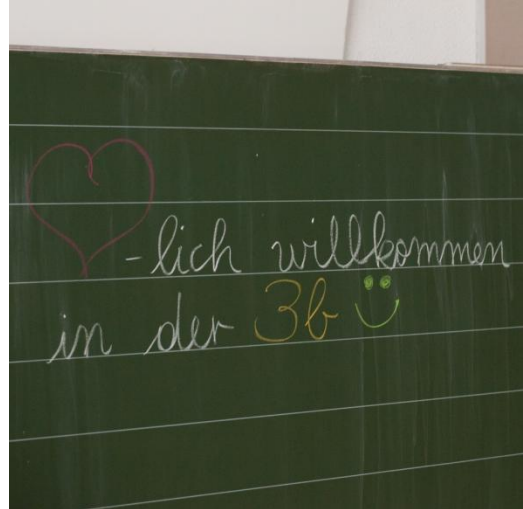 ❤-lich willkommen
in der 3b